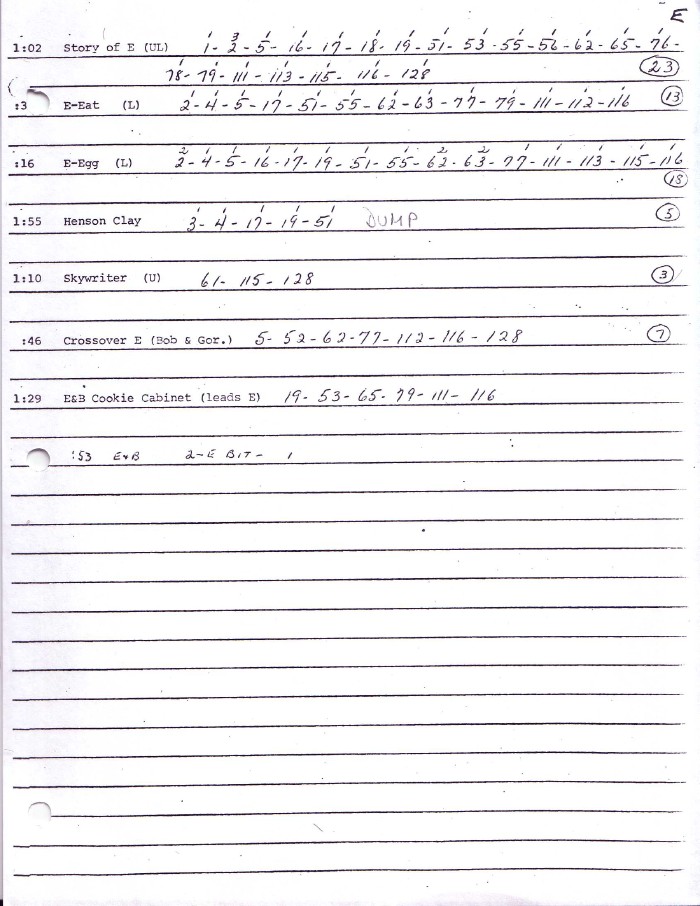 E
1:02 Story of E (UL) 1- 2- 5- 16- 17- 18- 19- 51- 53- 55- 56- 62- 65- 76-
78- 79- 111- 113- 115- 116- 128 23
:3 E-Eat (L) 2- 4- 5- 17- 51- 55- 62- 63- 77- 79- 111- 112- 116 13
:16 E-Egg (L) 2- 4- 5- 16- 17- 19- 51- 55- 62- 63- 77- 111- 113- 115- 116
18
1:55 Henson Clay 3- 4- 17- 19- 51 DUMP 5
1:10 Skywriter (U) 61- 115- 128 3
:46 Crossover E (Bob & Gor.) 5- 52- 62- 77- 112- 116- 128 7
1:29 E&B Cookie Cabinet (leads E) 19- 53- 65- 79- 111- 116
:53 E&B 2-E BIT- 1